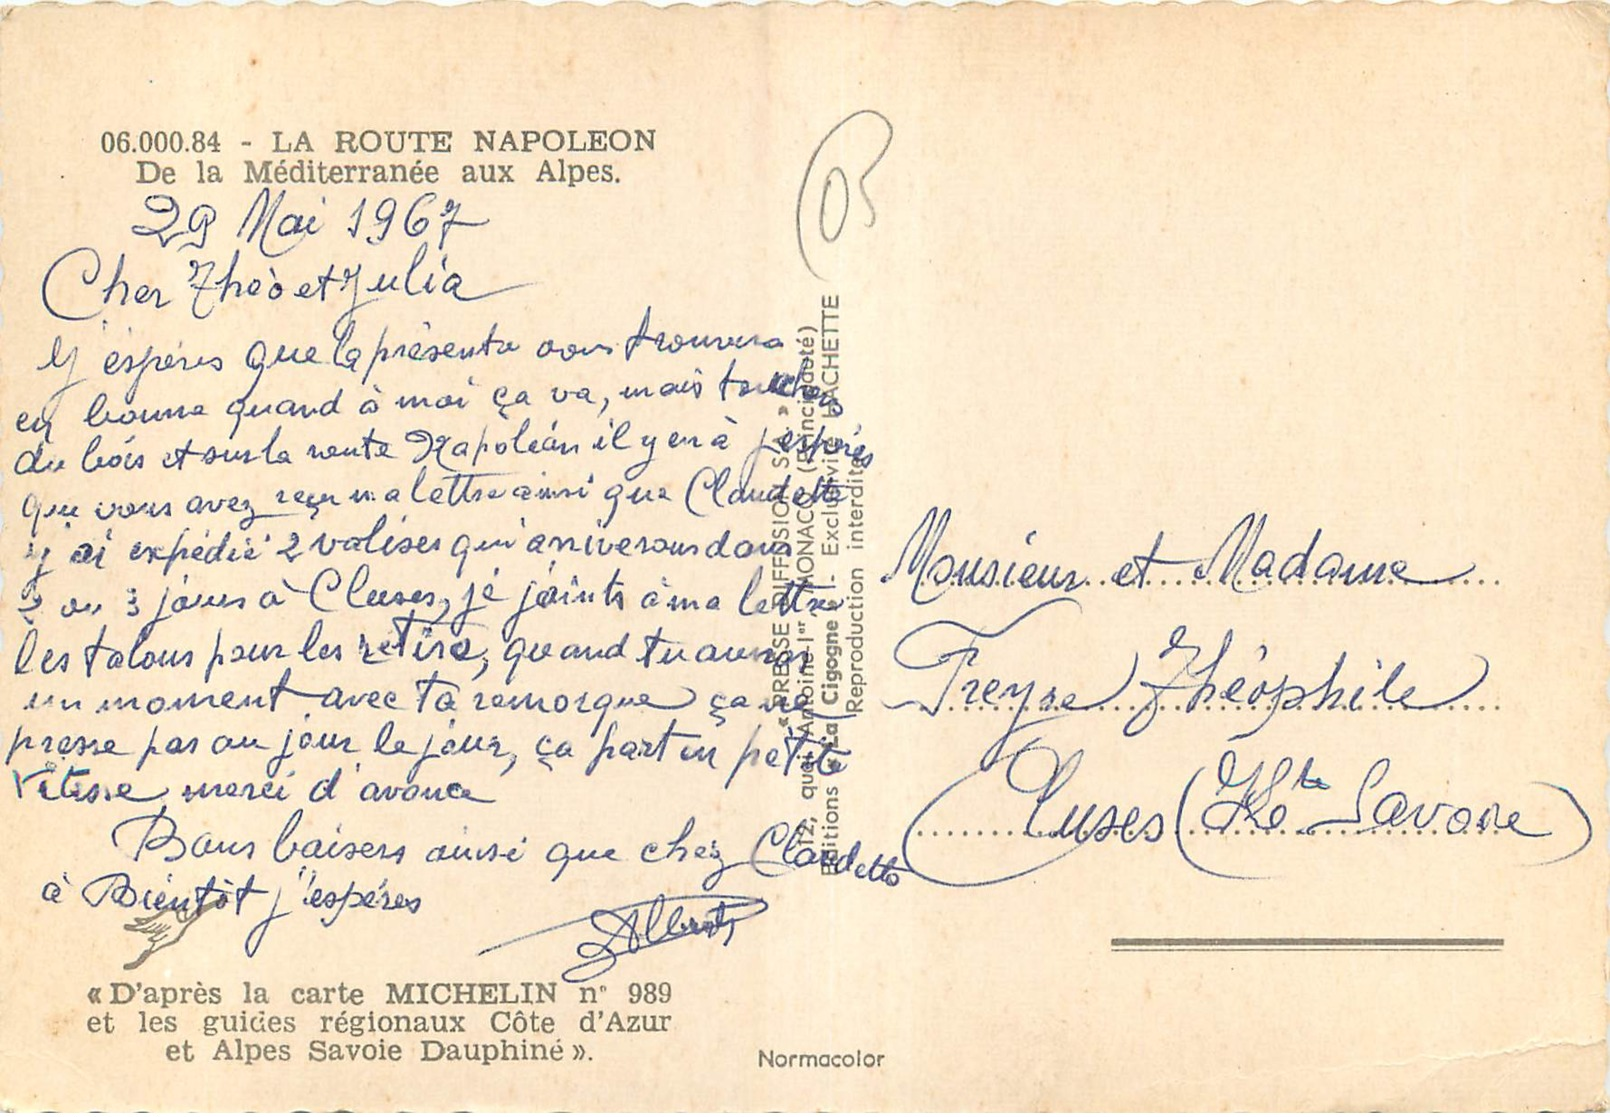 06.000.84 - LA ROUTE NAPOLEON
De la Méditerranée aux Alpes.
29 Mai 1967
Cher Théo et Julia
J'espères que la présente vous trouvera
en bonne quand à moi ça va, mais touchez
du bois et sur la route Napoléon il y en à j'espères
que vous avez reçu ma lettre ainsi que Claudette
j'ai expédié 2 valises qui arriverons dans
2 ou 3 jours à Cluses, je joints à ma lettre
les talons pour les retiré, quand tu auras
un moment avec ta remorque ça ne
presse pas au jour le jour, ça part en petite
vitesse merci d'avance
Bons baisers ainsi que chez Claudette
à Bientôt j'espéres
Albert
«D'après la carte MICHELIN n° 989
et les guides régionaux Côte d'Azur
et Alpes Savoie Dauphiné».
« PRESSE DIFFUSION S.A. »
12, quai Antoine-Ier, MONACO (Principauté)
Editions « La Cigogne » - Exclusivité HACHETTE
Reproduction interdite
Normacolor
05
Monsieur et Madame
Freyre Théophile
Cluses (Hte Savoie)